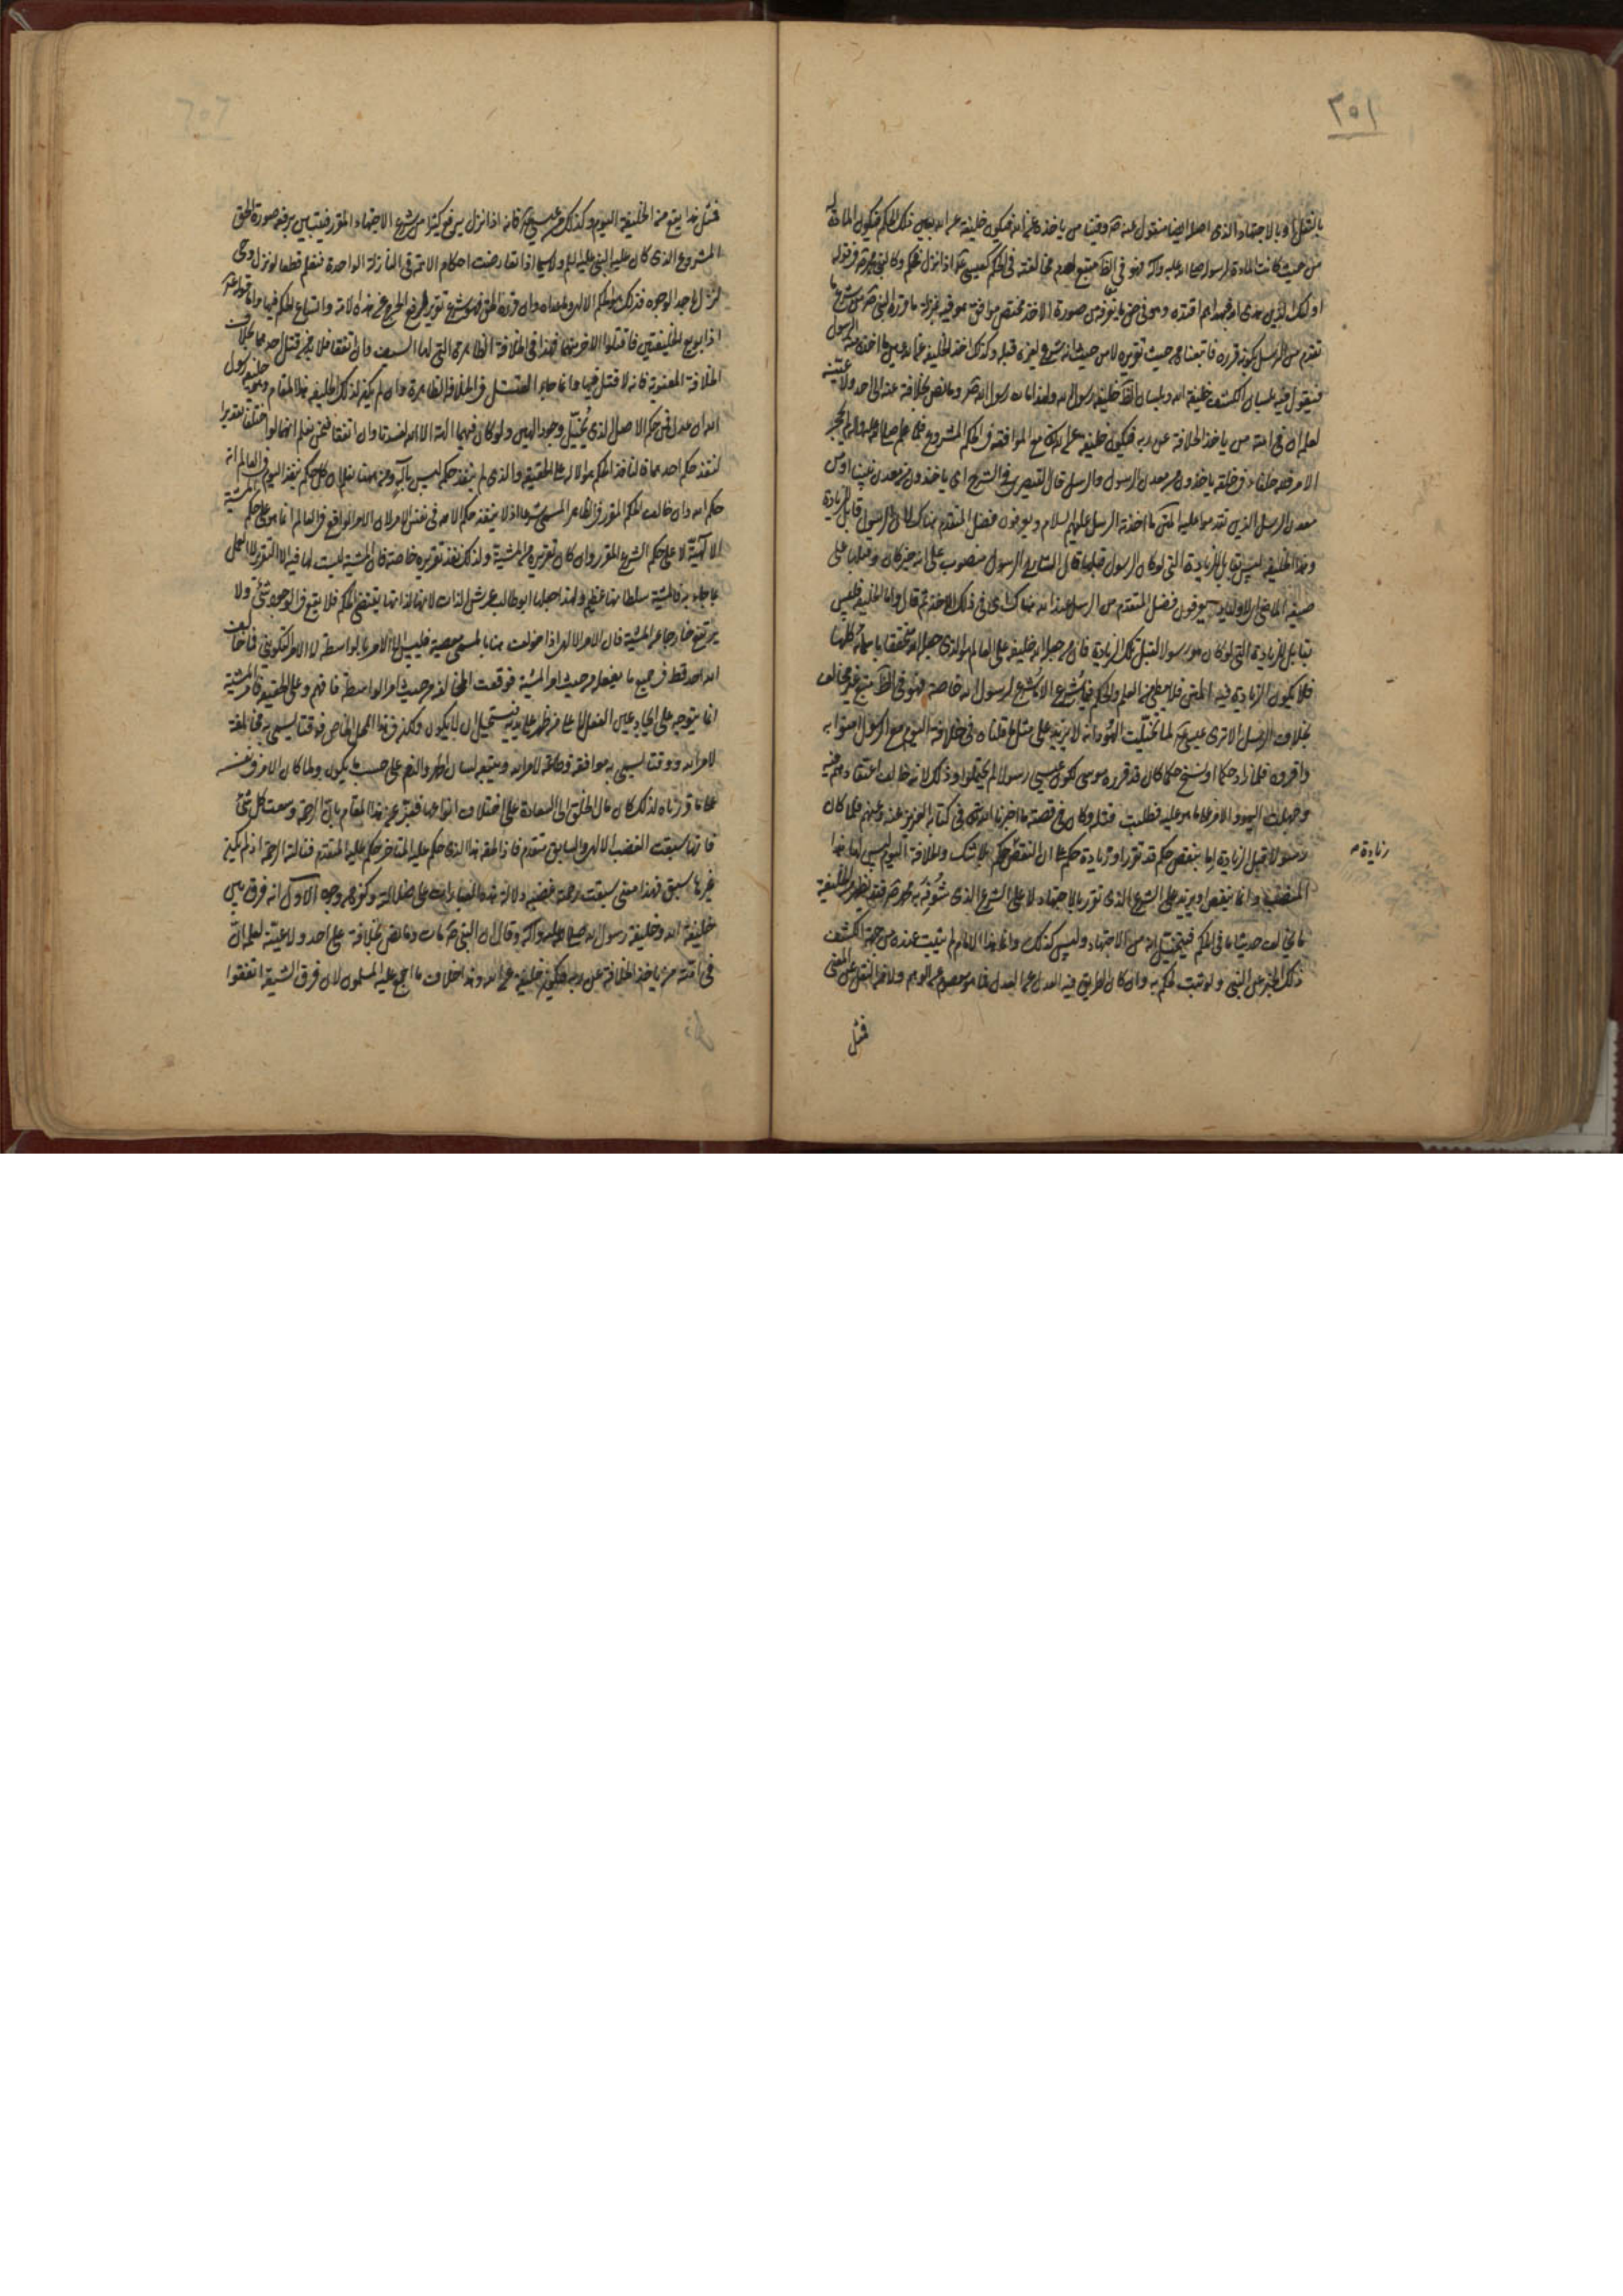 ٣٥١
بالنقل او بالاجتهاد الذى اصله ايضا منقول عنه وفينا من ياخذه عن الله فيكون خليفة عن الله بعين ذلك الحكم فيكون المادة له
من حيث كانت المادة لرسوله صلى الله عليه واله فهو فى الظ متبع لعدم مخالفته فى الحكم كعيسى اذا نزل فحكم وكالنبى محمد فى قوله
اولئك الذين هدى الله فبهديهم اقتده وهو فى حق ما يعرفه من صورة الاخذ مختص موافق هو فيه بمنزلة ما قرره النبى من شرع من
تقدم من الرسل بكونه قرره فاتبعناه من حيث تقريره لا من حيث انه شرع لغيره قبله وكذلك اخذ الخليفة عن الله عين ما اخذه منه الرسول
فنقول فيه بلسان الكشف خليفة الله وبلسان الظ خليفة رسول الله ولهذا مات رسول الله وما نص بخلافة عنه الى احد ولا عينه
لعلمه ان فى امته من ياخذ الخلافة عن ربه فيكون خليفة عن الله مع الموافقة فى الحكم المشروع فلما علم صلى الله عليه واله لم يحجر
الامر فلله خلفاء فى خلقه ياخذون من معدن الرسول والرسل قال القيصرى فى الشرح اى ياخذون من معدن نبينا ومن
معدن الرسل الذين تقدموا عليه المتن ما اخذته الرسل عليهم السلام ويعرفون فضل المتقدم هناك لان الرسول قابل للزيادة
وهذا الخليفة ليس بقابل للزيادة التى لو كان الرسول قبلها قال الشارح الرسول منصوب على انه خبر كان
يعرفون فضل المتقدم من الرسل عند الله هناك اى فى ذلك الاخذ ثم قال واما الخليفة فليس
بقابل للزيادة التى لو كان هو رسولا لقبل تلك الزيادة فان من جعله الله خليفة على العالم هو الذى جعله الله متحققا باسمائه كلها
فلا يكون الزيادة فيه المتن فلا يعطى من العلم والحكم فيما شرع الا ما شرع لرسول الله خاصة فهو فى الظ متبع غير مخالف
بخلاف الرسل الا ترى عيسى لما تخيلت اليهود انه لا يزيد على موسى مثل ما قلناه فى خلافة اليوم مع الرسول امنوا به
واقروه فلما زاد حكما او نسخ حكما كان قد قرره موسى لكون عيسى رسولا لم يحتملوا ذلك لانه خالف اعتقادهم فيه
وجهلت اليهود الامر على ما هو عليه فطلبت قتله وكان من قصته ما اخبرنا الله فى كتابه العزيز عنه وعنهم فلما كان
رسولا قبل الزيادة اما بنقص حكم قد تقرر او زيادة حكم على ان النقص حكم بلا شك والخلافة اليوم ليس لها هذا
المنصب وانما ينقص او يزيد على الشرع الذى تقرر بالاجتهاد لا على الشرع الذى شوفه به محمد فقد يظهر من الخليفة
ما يخالف حديثا ما فى الحكم فيتخيل انه من الاجتهاد وليس كذلك وانما هذا الامام لم يثبت عنده من جهة الكشف
ذلك الخبر عن النبى ولو ثبت لحكم به وان كان الطريق فيه العدل عن العدل فما هو معصوم من الوهم ولا من النقل على المعنى
فمثل
زيادة
فمثل هذا يقع من الخليفة اليوم وكذلك يقع من عيسى فانه اذا نزل يرفع كثيرا من شرع الاجتهاد المقرر فيتبين برفعه صورة الحق
المشروع الذى كان عليه النبى عليه السلام ولا سيما اذا تعارضت احكام الائمة فى النازلة الواحدة فنعلم قطعا لو نزل وحى
لنزل باحد الوجوه فذلك هو الحكم الالهى وما عداه وان قرره الحق فهو شرع تقرير لرفع الحرج عن هذه الامة واتساع الحكم فيها واما قوله
اذا بويع لخليفتين فاقتلوا الاخر منهما فهذا فى الخلافة الظاهرة التى لها السيف وان اتفقا فلا بد من قتل احدهما بخلاف
الخلافة المعنوية فانه لا قتل فيها وانما جاء القتل فى الخلافة الظاهرة وان لم يكن لذلك الخليفة هذا المقام وهو خليفة رسول
الله ان عدل فمن حكم الاصل الذى به تخيل وجود الهين ولو كان فيهما الهة الا الله لفسدتا وان اتفقا فنحن نعلم انهما لو اختلفا تقديرا
لنفذ حكم احدهما فالنافذ الحكم هو الاله على الحقيقة والذى لم ينفذ حكمه ليس باله ومن هنا نعلم ان كل حكم ينفذ اليوم فى العالم انه
حكم الله وان خالف الحكم المقرر فى الظاهر المسمى شرعا اذ لا ينفذ حكم الا لله فى نفس الامر لان الامر الواقع فى العالم انما هو على حكم المشية
الالهية لا على حكم الشرع المقرر وان كان تقريره من المشية ولذلك نفذ تقريره خاصة فان المشية ليست لها فيه الا التقرير لا العمل
بما جاء به فالمشية سلطانها عظيم ولهذا جعلها ابو طالب عرش الذات لانها لذاتها يقتضى الحكم فلا يقع فى الوجود شئ ولا
يرتفع خارجا عن المشية فان الامر الالهى اذا خولفت هنا بالمسمى معصية فليس الا الامر بالواسطة لا الامر التكوينى فما خالف
الله احد قط فى جميع ما يفعله من حيث امر المشية فوقعت المخالفة من حيث امر الواسطة فافهم وعلى الحقيقة فامر المشية
انما يتوجه على ايجاد عين الفعل لا على من ظهر على يديه فيستحيل ان لا يكون ولكن فى هذا المحل الخاص فوقتا يسمى به مخالفة
لامر الله ووقتا يسمى به موافقة وطاعة لامر الله ويتبعه لسان الحمد والذم على حسب ما يكون ولما كان الامر فى نفسه
على ما قررناه لذلك كان مآل الخلق الى السعادة على اختلاف انواعها فعبر عن هذا المقام بان الرحمة وسعت كل شئ
فانها سبقت الغضب الالهى والسابق متقدم فاذا لحقه هذا الذى حكم عليه المتاخر حكم عليه المتقدم فنالته الرحمة اذ لم يكن
غيرها سبق فهذا معنى سبقت رحمته غضبه دلالة هذه العبارات على ضلالته وكفره من وجوه الاول انه فرق بين
خليفة الله وخليفة رسول الله صلى الله عليه واله وقال ان النبى مات وما نص بخلافة على احد ولا عينه لعلمه ان
فى امته من ياخذ الخلافة عن ربه فيكون خليفة عن الله وهذا خلاف ما اجمع عليه المسلمون لان فرق الشيعة اتفقوا